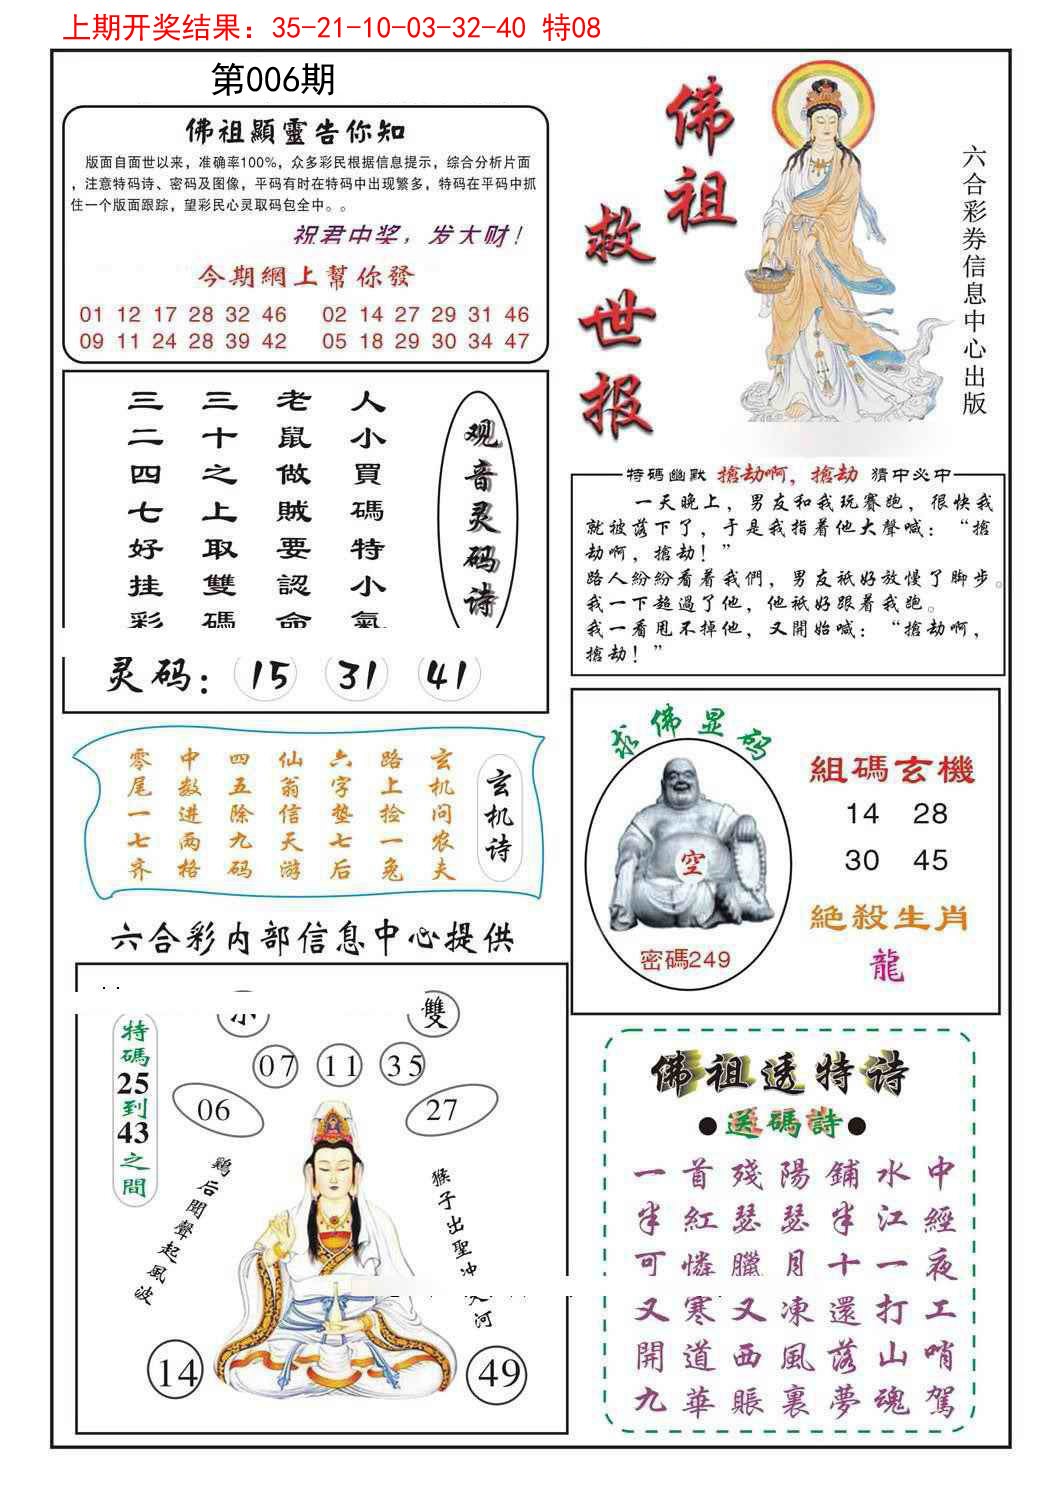 上期开奖结果：35-21-10-03-32-40 特08
第006期
佛祖顯靈告你知
版面自面世以来，准确率100%，众多彩民根据信息提示，综合分析片面
，注意特码诗、密码及图像，平码有时在特码中出现繁多，特码在平码中抓
住一个版面跟踪，望彩民心灵取码包全中。。
祝君中奖，发大财！
今期網上幫你發
01 12 17 28 32 46 02 14 27 29 31 46
09 11 24 28 39 42 05 18 29 30 34 47
佛祖
救世报
六合彩券信息中心出版
观音灵码诗
人小買碼特小氣
老鼠做賊要認命
三十之上取雙碼
三二四七好挂彩
灵码：15 31 41
特碼幽默 搶劫啊，搶劫 猜中必中
一天晚上，男友和我玩賽跑，很快我
就被落下了，于是我指着他大聲喊：“搶
劫啊，搶劫！”
路人紛紛看着我們，男友祇好放慢了脚步。
我一下超過了他，他祇好跟着我跑。
我一看甩不掉他，又開始喊：“搶劫啊，
搶劫！”
玄机诗
玄机问农夫
路上捡一兔
六字垫七后
仙翁信天游
四五除九码
中数进两格
零尾一七齐
求佛显码
空
密碼249
組碼玄機
14 28
30 45
絕殺生肖
龍
六合彩内部信息中心提供
小
雙
特碼25到43之間
07 11 35
06
27
鷄后聞聲起風波
猴子出聖冲天河
14
49
佛祖透特诗
●送碼詩●
一首殘陽鋪水中
半紅瑟瑟半江經
可憐臘月十一夜
又寒又凍還打工
開道西風落山哨
九華賬裏夢魂駕